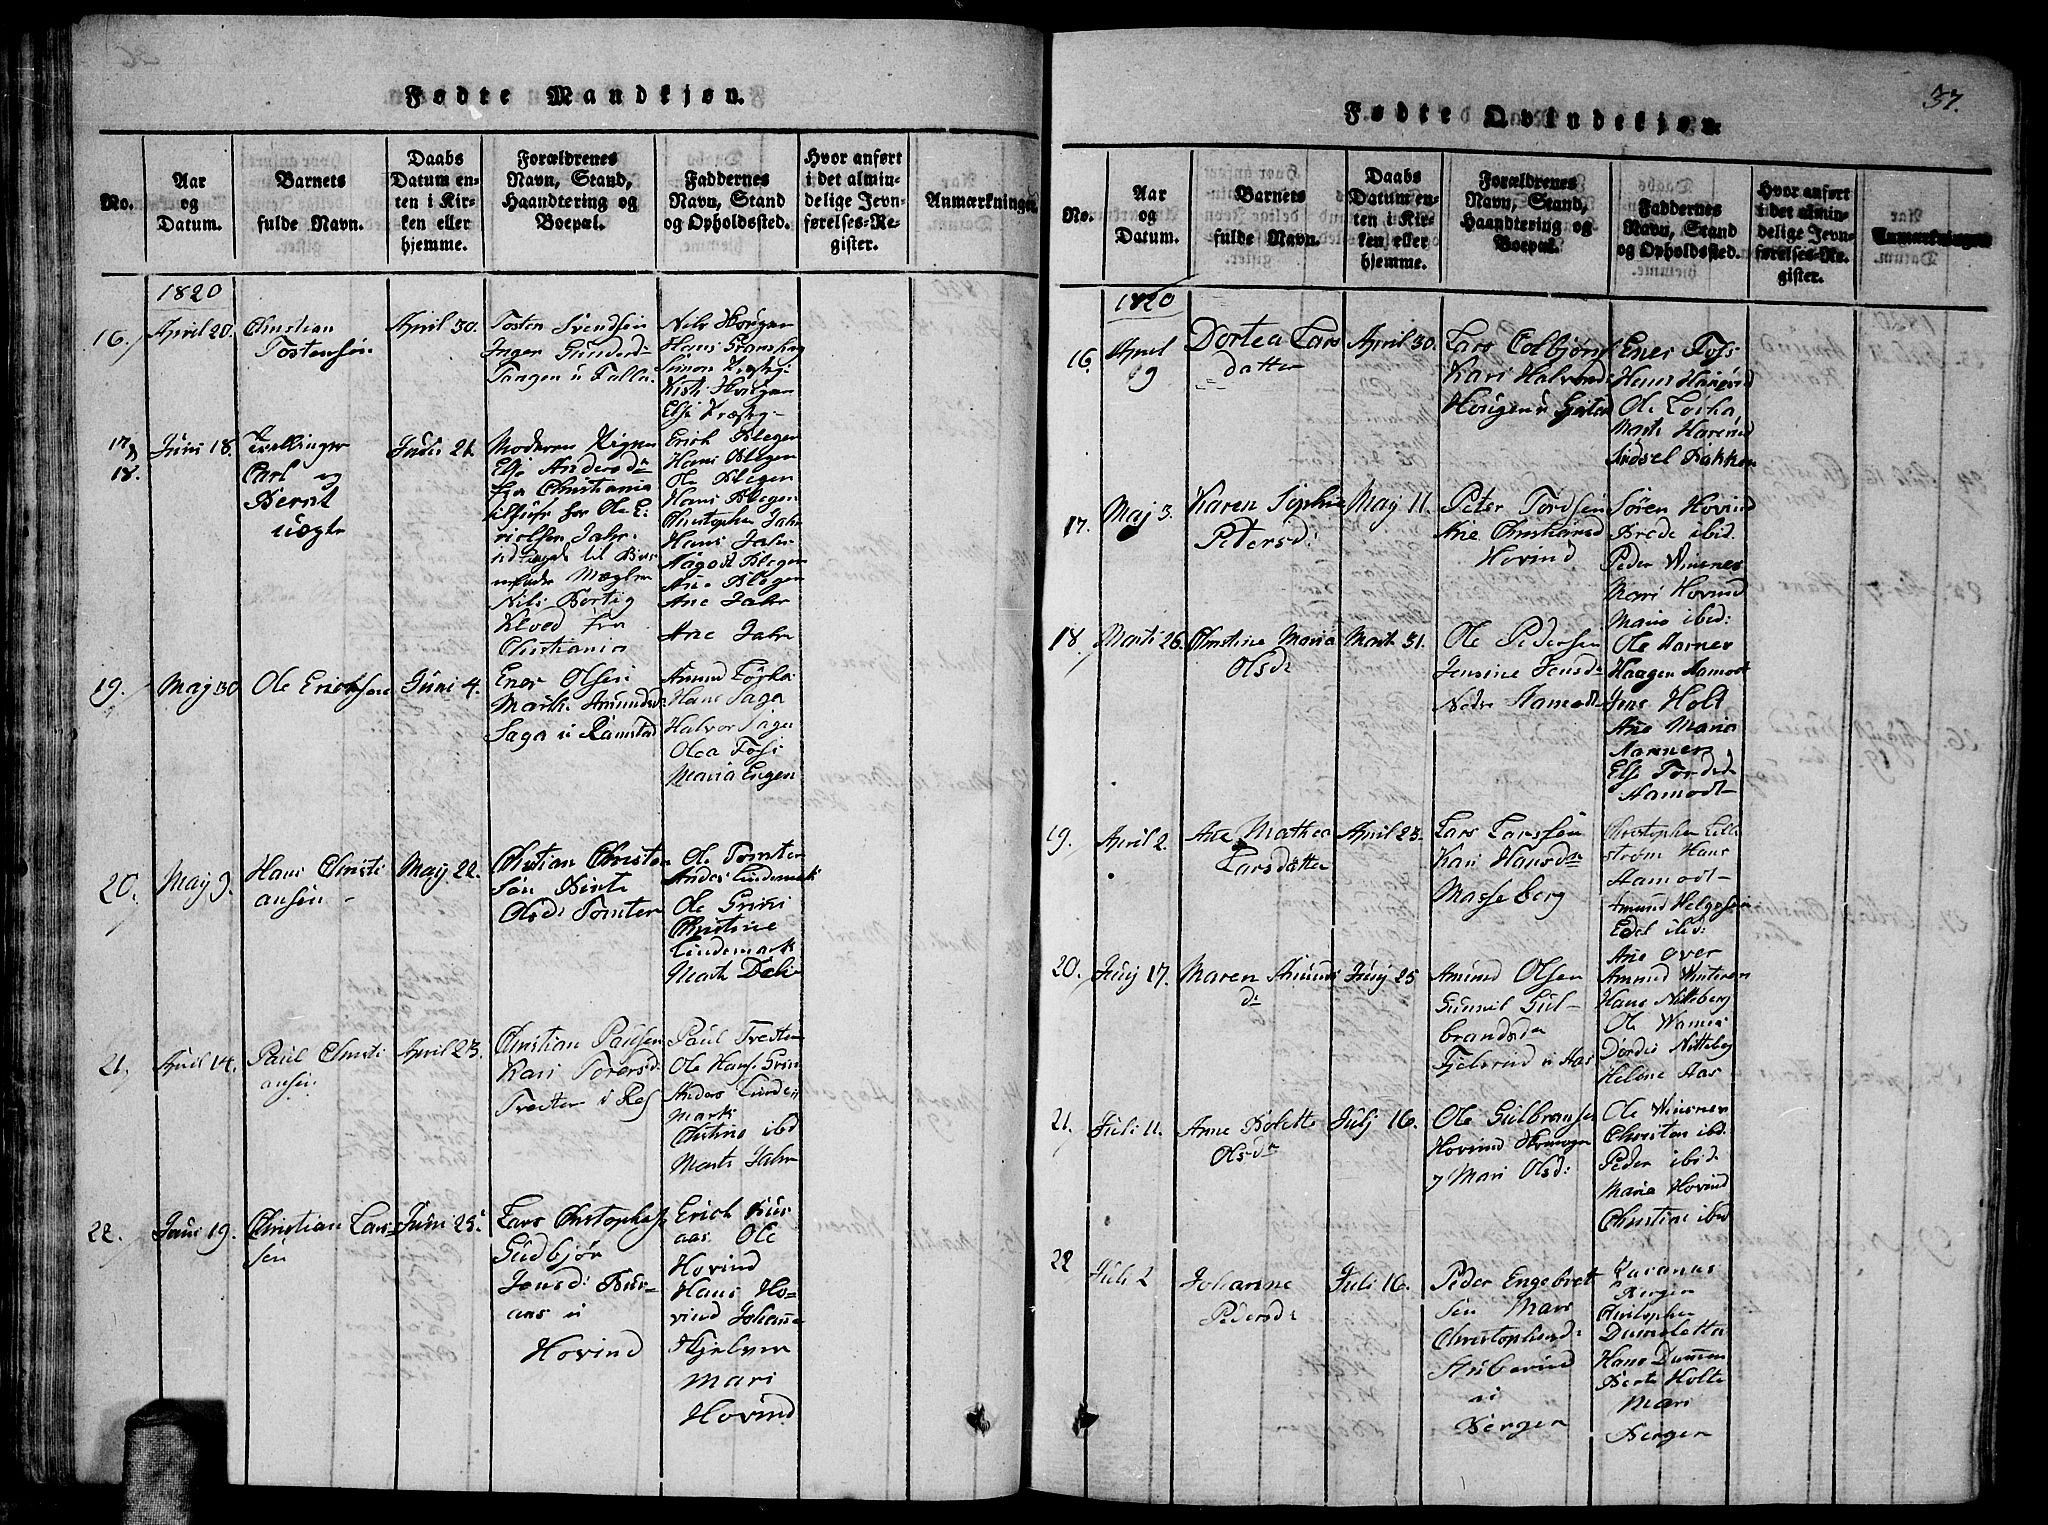 Fødte Mandkjøn.
No.
Aar og Datum.
Barnets fulde Navn.
Daabs Datum enten i Kirken eller hjemme.
Forældrenes Navn, Stand, Haandtering og Boepæl.
Faddernes Navn, Stand og Opholdssted.
Hvor anført i det almindelige Jevnførelses-Register.
Anmærkninger
1820
16. April 20. Christian Tostensøn
April 30.
Tosten Svendsen
Inger Gunders
Taagen u Falla
Nils Horgen
Hans
Simon
Kisti Horgen
Else
17 &
18.
Juni 18. Tvillinger
Carl og
Bernt
uægte
Juni 21.
Moderen Pigen
Else Andersd
fra Christiania
Ole
Jahr
udlagt til Barnefader
Nils
fra
Christiania
Erich Blegen
Hans Blegen
Ole Blegen
Hans Blegen
Christopher Jahr
Hans Jahr
Aagot Blegen
Ane Blegen
Ane Jahr
Ane Jahr
19. Maj 30 Ole Ericksen Juni 4.
Ener Olsen
Marthe Amunds
Saga u Ramstad
Amund
Hans Saga
Halvor Saga
Olea Fossi
Maria Engen
20. May 9. Hans Christi
ansen
May 22.
Christian Christen
søn Birte
Olsd: Tomter
Ole Tomter
Anders Lindemark
Ole
Christine
Lindemark
Marte
21. April 14. Paul Christi
ansen
April 23.
Christian Paulsen
Kari Torersd
Ole Hans
Anders Linde
mark
Christine ibd
Marte Jahr
22. Juni 19. Christian Lars
sen
Juni 25.
Lars Christophers
Gudbjør
Jensd:
u
Hovind
Erich
Ole
Hovind
Hans Ho-
vind Johanne
Kjelver
Mari
Hovind
37.
Fødte Qvindekjøn.
No.
Aar og Datum.
Barnets fulde Navn.
Daabs Datum enten i Kirken eller hjemme.
Forældrenes Navn, Stand, Haandtering og Boepæl.
Faddernes Navn, Stand og Opholdssted.
Hvor anført i det almindelige Jevnførelses-Register.
Anmærkninger
1820
16. April
9
Dortea Lars
datter
April 30.
Lars Colbjørns
Kari Halvords
Horgen u
Ener Foss
Hans
Ole
Marte
Sidsel Bakken
17. Maj 3. Karen Sophie
Petersd:
May 11.
Peter Tordsen
Ane Christiansd
Hovind
Søren Hovind
Brede ibid.
Peder Winsnes
Mari Hovind
Maria ibid:
18. Marti 26. Christine Maria
Olsd
Marti 31.
Ole Pedersen
Jensine Jensd
Nedre Aamodt
Ole
Haagen Aamodt
Jens Holt
Ane Maria
Else Tordsd
Aamodt
19. April 2. Ane Mathea
Larsdatter
April 23.
Lars Larssen
Kari Hansd
Masseberg
Christopher Lille
strøm Hans
Aamodt
Amund Helgesen
Edel ibid:
Ane over
20. Junj 17. Maren Amund
d:
Junj 25
Amund Olsen
Gunnil Gul-
brandsd
u Aas
Amund
Hans Nitteberg
Ole
Dordis Nitteberg
Helene Aas
21. Juli 11. Anne Bolette
Olsd
Julj 16.
Ole Gulbransen
Hovind
& Mari Olsd:
Ole Winsnes
Christen ibd.
Peder ibid:
Maria Hovind
Christine ibid
22
Juli 2
Johanne
Pedersd:
Juli 16.
Peder Engebret
sen Mari
Christophersd:
u
Bergen
Rasanus
Bergen
Christopher
Hans
Berte Holte
Mari
Bergen